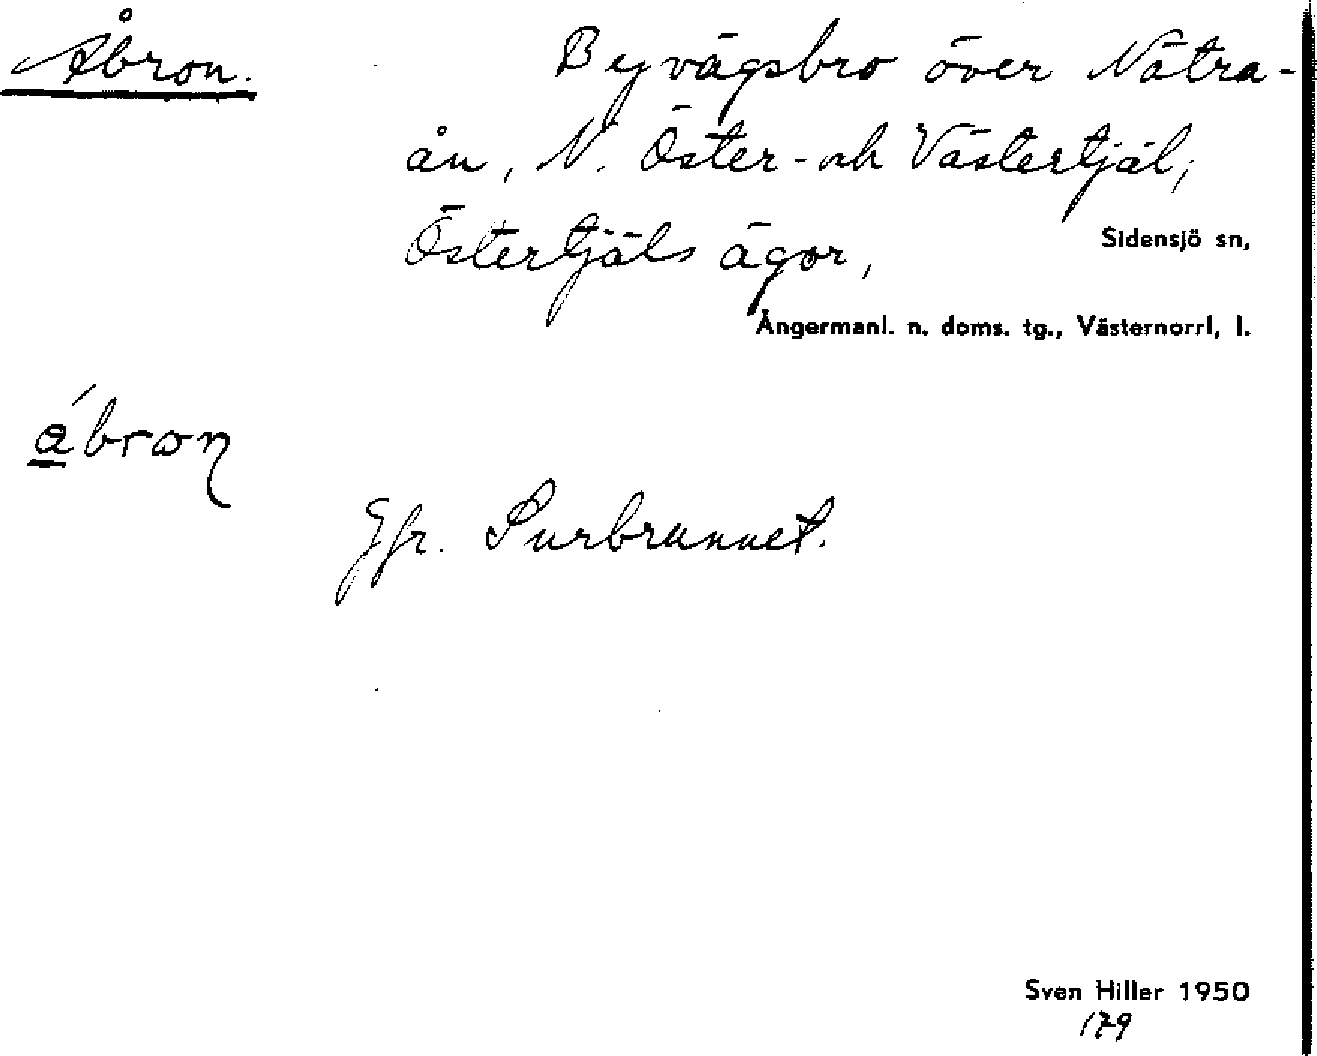 Åbron.
Byvägsbro över Nätra-
ån, N. Öster- och Västertjäl;
Östertjäls ägor,
Sidensjö sn,
Ångermanl. n. doms. tg., Västernorrl, l.
Jfr. Surbrunnet.
Sven Hiller 1950
179